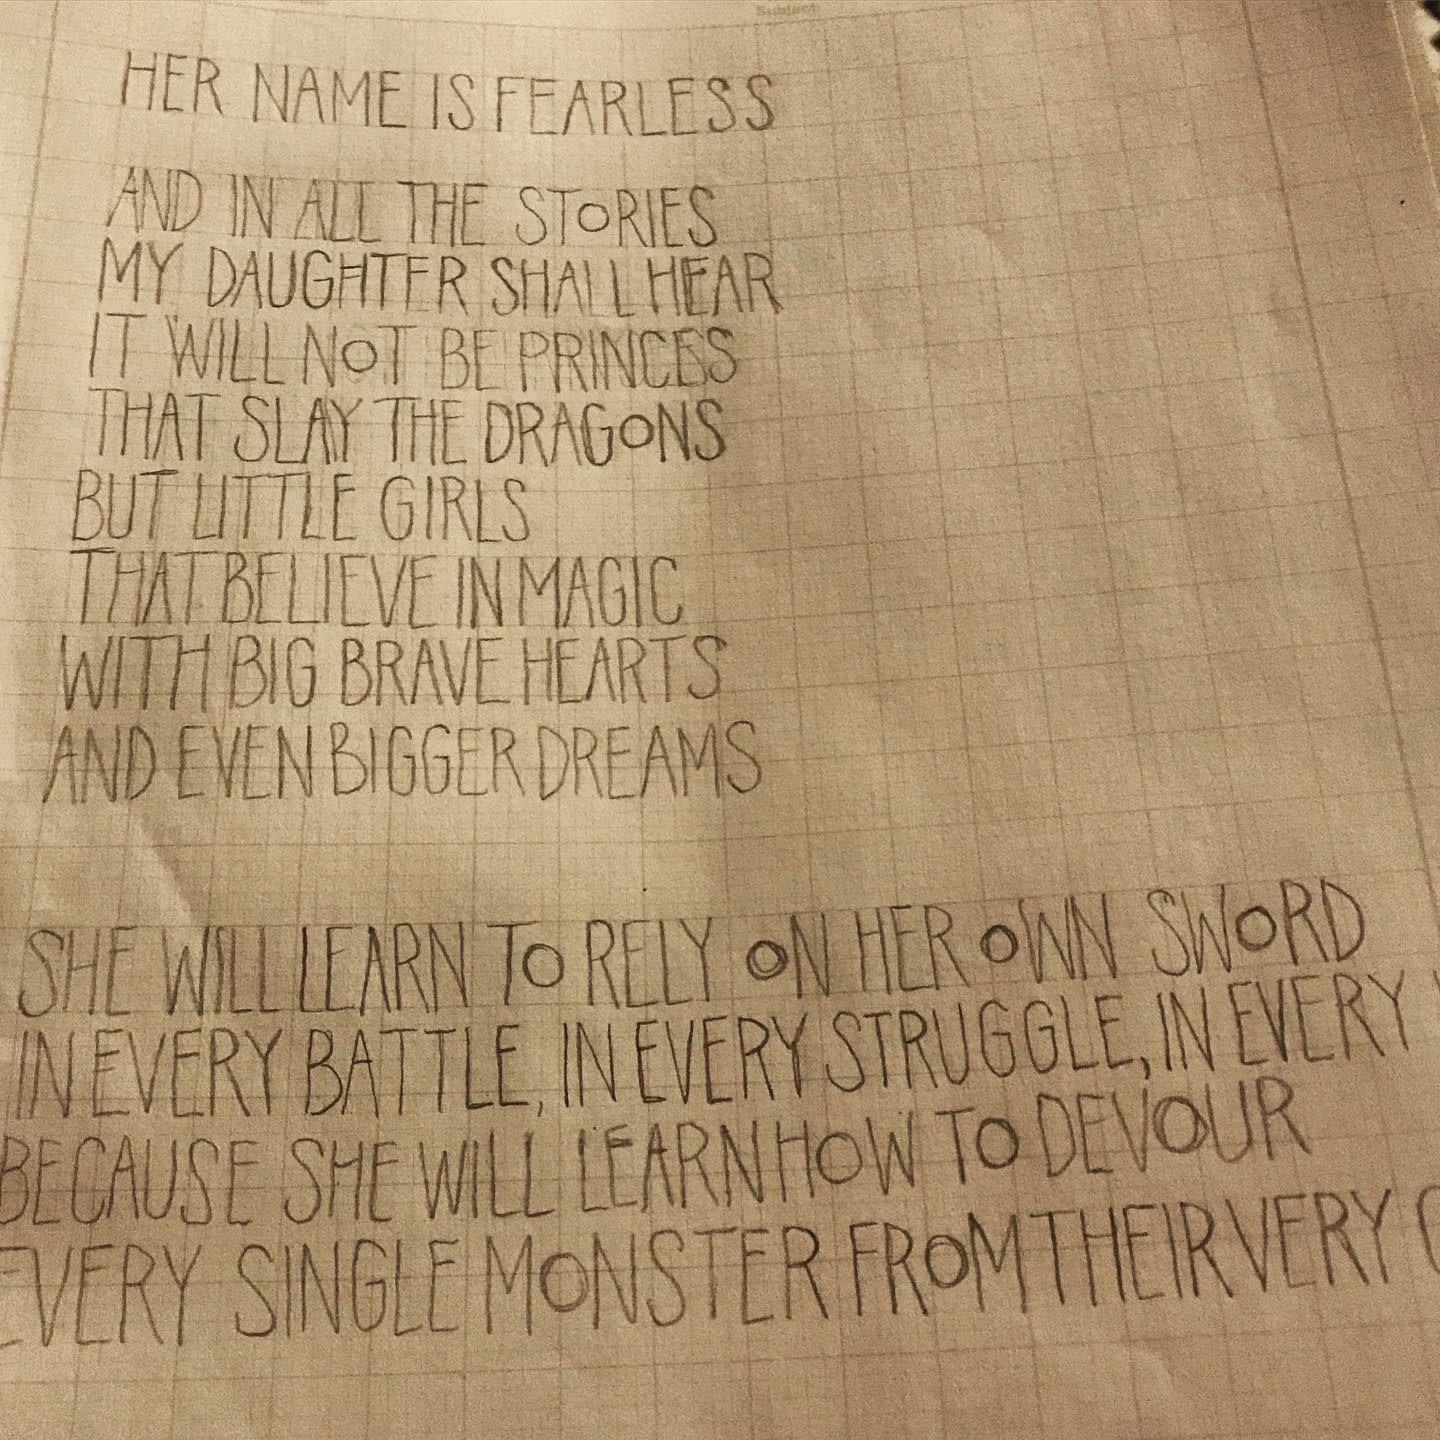 Subject
HER NAME IS FEARLESS
AND IN ALL THE STORIES
MY DAUGHTER SHALL HEAR
IT WILL NOT BE PRINCES
THAT SLAY THE DRAGONS
BUT LITTLE GIRLS
THAT BELIEVE IN MAGIC
WITH BIG BRAVE HEARTS
AND EVEN BIGGER DREAMS
SHE WILL LEARN TO RELY ON HER OWN SWORD
IN EVERY BATTLE, IN EVERY STRUGGLE, IN EVERY
BECAUSE SHE WILL LEARN HOW TO DEVOUR
EVERY SINGLE MONSTER FROM THEIR VERY